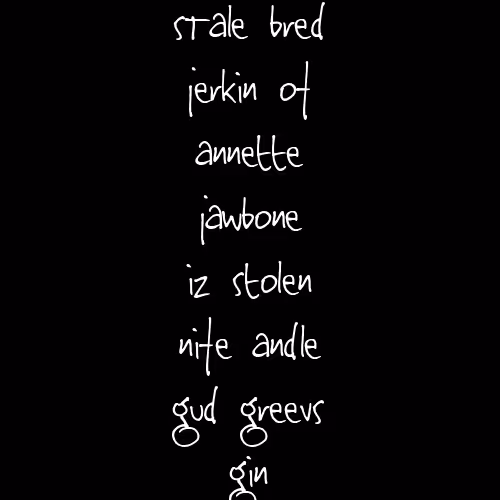 stale bred
jerkin of
annette
jawbone
iz stolen
nite andle
gud greevs
gin